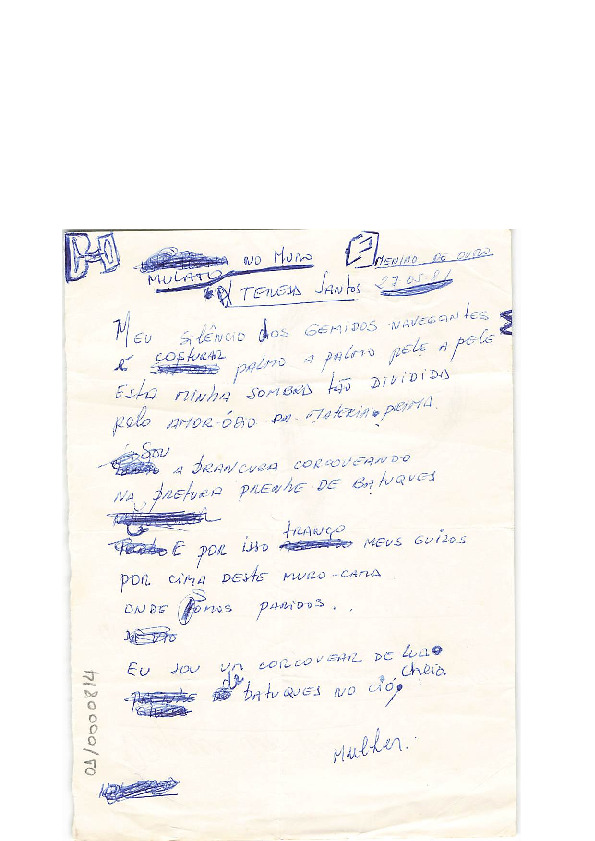 NO MURO
MULATO
P/ TERESA SANTOS
MENINO DE OURO
27-05-81
MEU SILÊNCIO DOS GEMIDOS-NAVEGANTES
É COSTURAR PALMO A PALMO PELE A PELE
ESTA MINHA SOMBRA TÃO DIVIDIDA
PELO AMOR-ÓDIO DA MATÉRIA-PRIMA.
SOU
A BRANCURA CORCOVEANDO
NA PRETURA PRENHE DE BATUQUES
E POR ISSO TRANÇO MEUS GUIZOS
POR CIMA DESTE MURO-CAMA
ONDE SOMOS PARIDOS...
EU SOU UM CORCOVEAR DE LUA
CHEIA
DE BATUQUES NO CIO,
Mulher.
05/0000814